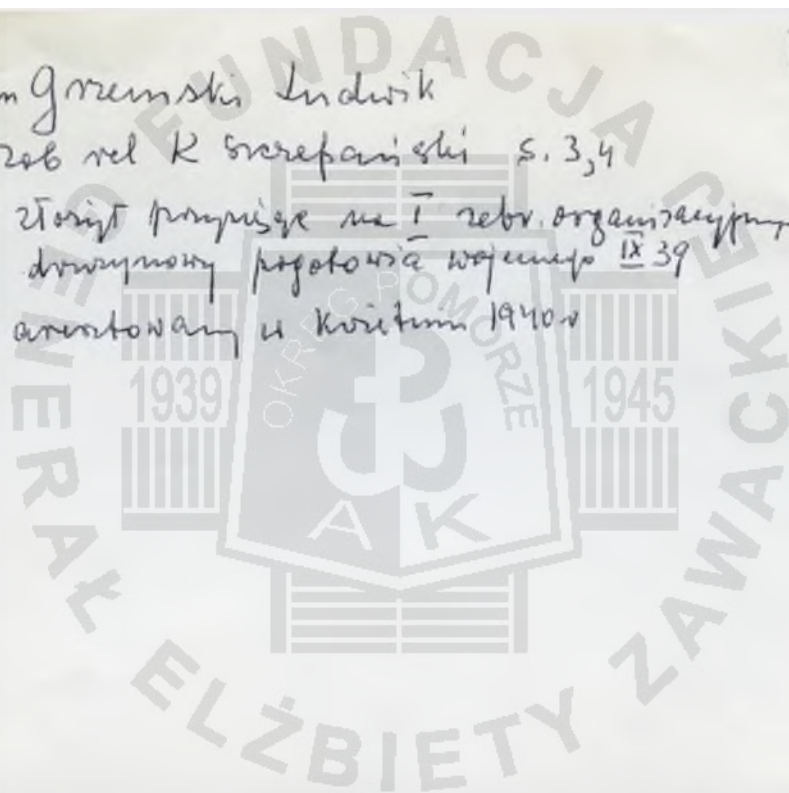 m Grzemski Ludwik
zob rel K Szczepański s. 3,4
złożył przysięgę na I zebr. organizacyjnym
drużynowy pogotowia wojennego IX 39
aresztowany w kwietniu 1940 r
FUNDACJA GENERAŁ ELŻBIETY ZAWACKIEJ
OKRĘG POMORZE
1939 1945
AK